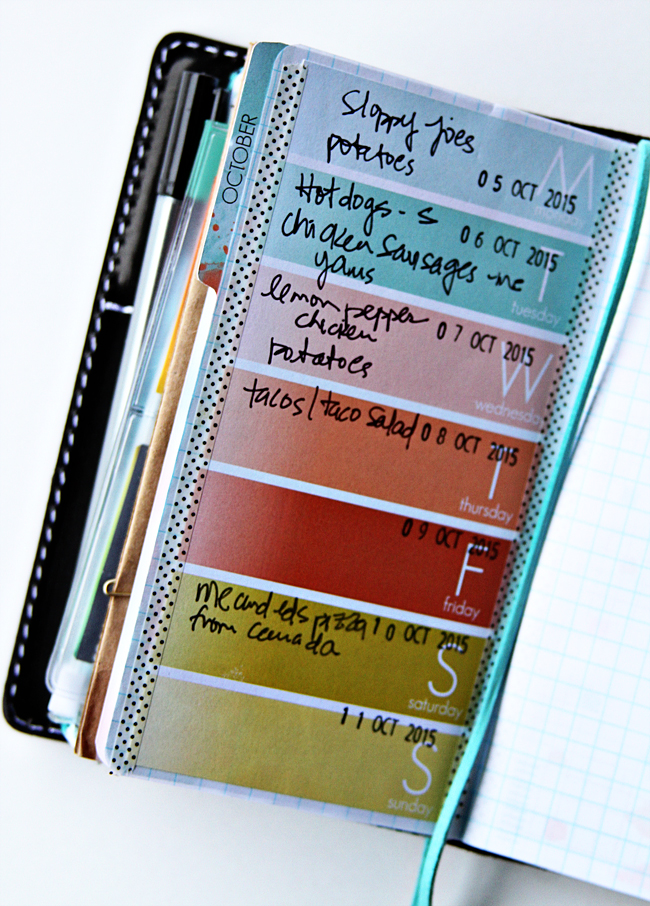 OCTOBER
Sloppy joes
potatoes
05 OCT 2015
M
monday
Hotdogs - S
06 OCT 2015
chicken sausages - me
yams
T
tuesday
lemon pepper
07 OCT 2015
chicken
potatoes
W
wednesday
tacos / taco salad 08 OCT 2015
T
thursday
09 OCT 2015
F
friday
me and eds pizza 10 OCT 2015
from canada
S
saturday
11 OCT 2015
S
sunday